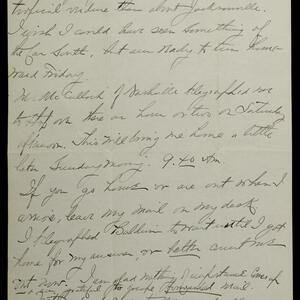 tropical verdure than about Jacksonville.
I wish I could have seen something of
the Far South, but am ready to turn home-
ward Friday
Mr. McCulloch of Nashville telegraphed me
to stop over there an hour or two on Saturday
afternoon. This will bring me home a little
later Sunday morn'g. 9.40 Am.
If you go home or are out when I
arrive, leave my mail on my desk
I telegraphed Baldwin to wait until I got
home for my answer, or letter
out now. I am glad nothing important came up
mail